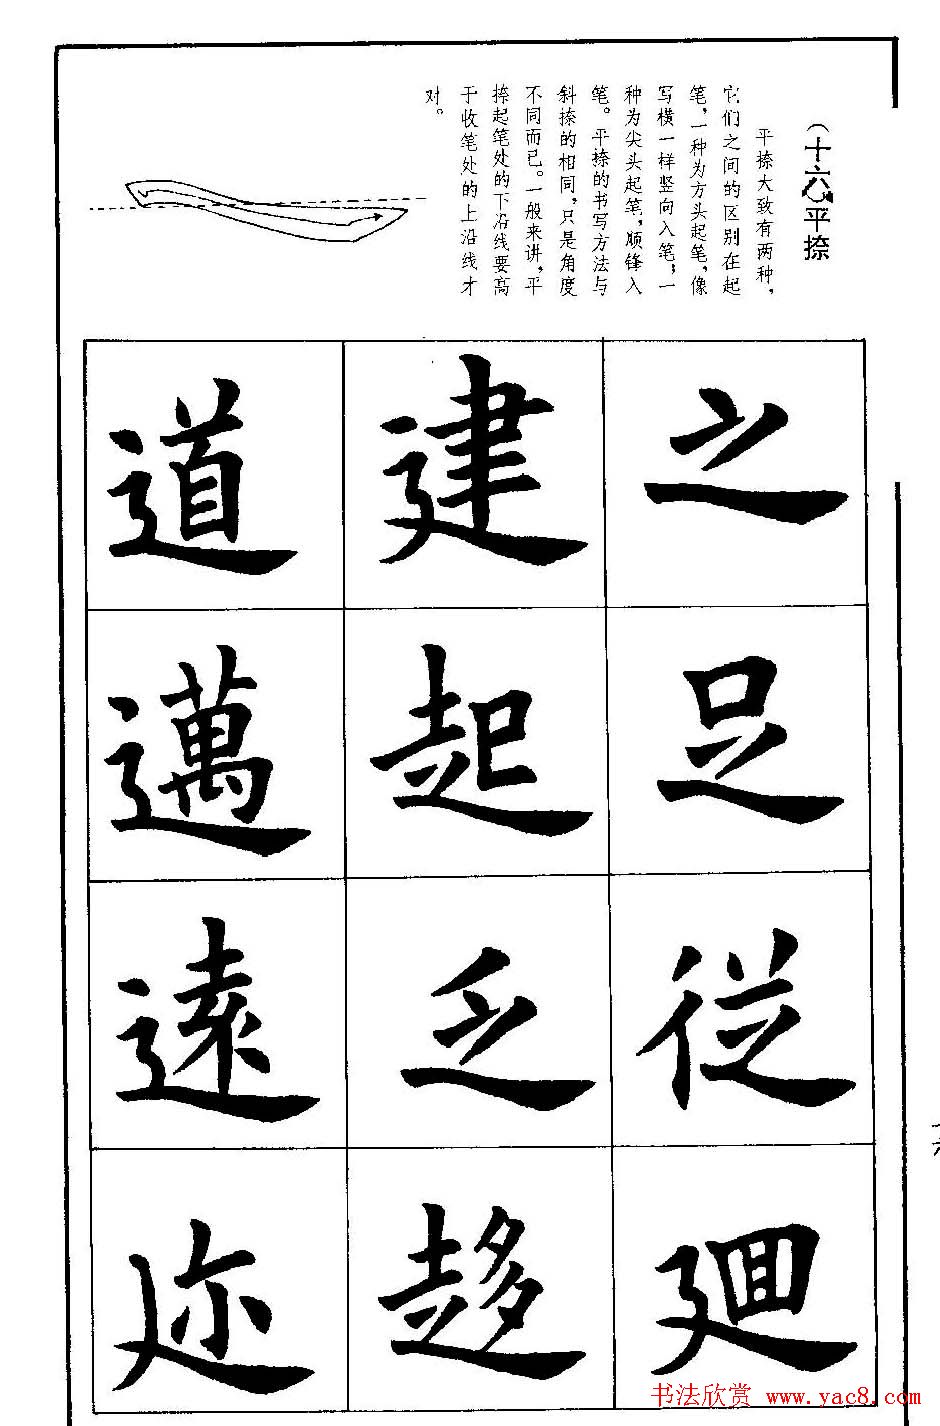 (十六)平捺
平捺大致有两种，
它们之间的区别在起
笔，一种为方头起笔，像
写横一样竖向入笔；一
种为尖头起笔，顺锋入
笔。平捺的书写方法与
斜捺的相同，只是角度
不同而已。一般来讲，平
捺起笔处的下沿线要高
于收笔处的上沿线才
对。
之
足
従
廻
建
起
乏
趍
道
邁
遠
迩
书法欣赏 www.yac8.com